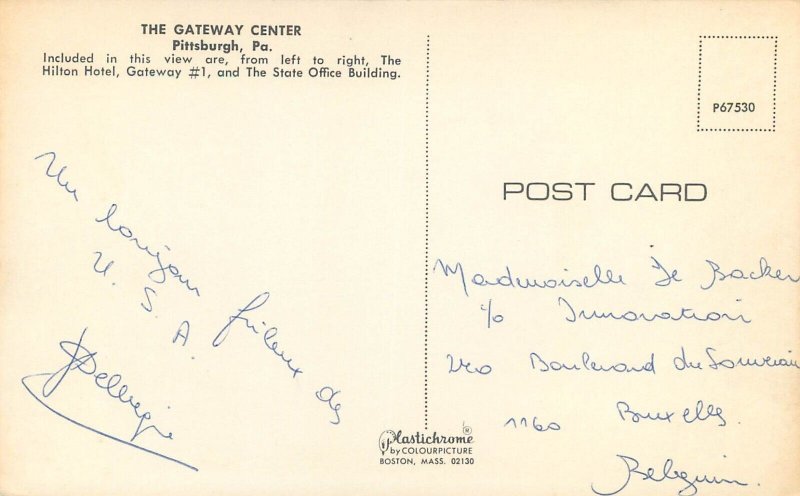 THE GATEWAY CENTER
Pittsburgh, Pa.
Included in this view are, from left to right, The
Hilton Hotel, Gateway #1, and The State Office Building.
Un bonjour frileux des
U. S. A.
P67530
POST CARD
Mademoiselle De Backer
c/o Innovation
Boulevard du Souverain
1160 Bruxelles.
Belgium.
Plastichrome®
by COLOURPICTURE
BOSTON, MASS. 02130